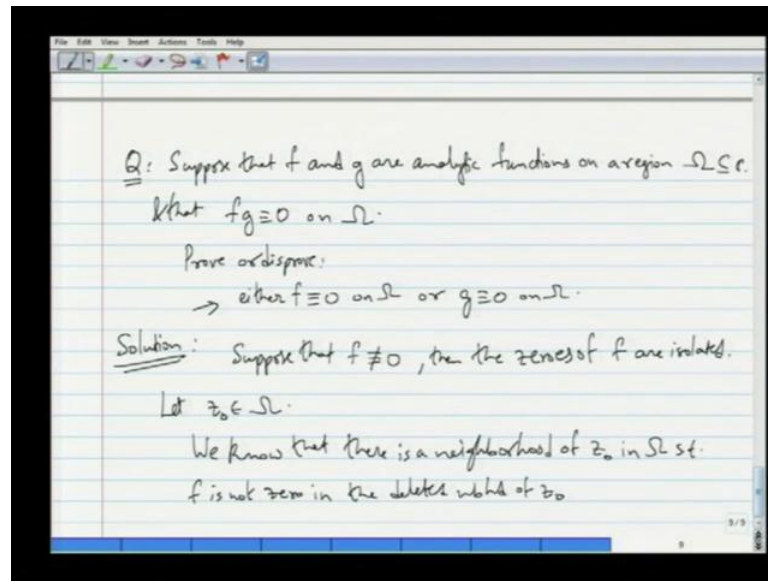 File Edit View Insert Actions Tools Help
Q: Suppose that f and g are analytic functions on a region Ω ⊆ ℂ.
& that fg ≡ 0 on Ω.
Prove or disprove:
→ either f ≡ 0 on Ω or g ≡ 0 on Ω.
Solution: Suppose that f ≢ 0, then the zeroes of f are isolated.
Let z₀ ∈ Ω.
We know that there is a neighborhood of z₀ in Ω st.
f is not zero in the deleted nbhd of z₀
9/9
9